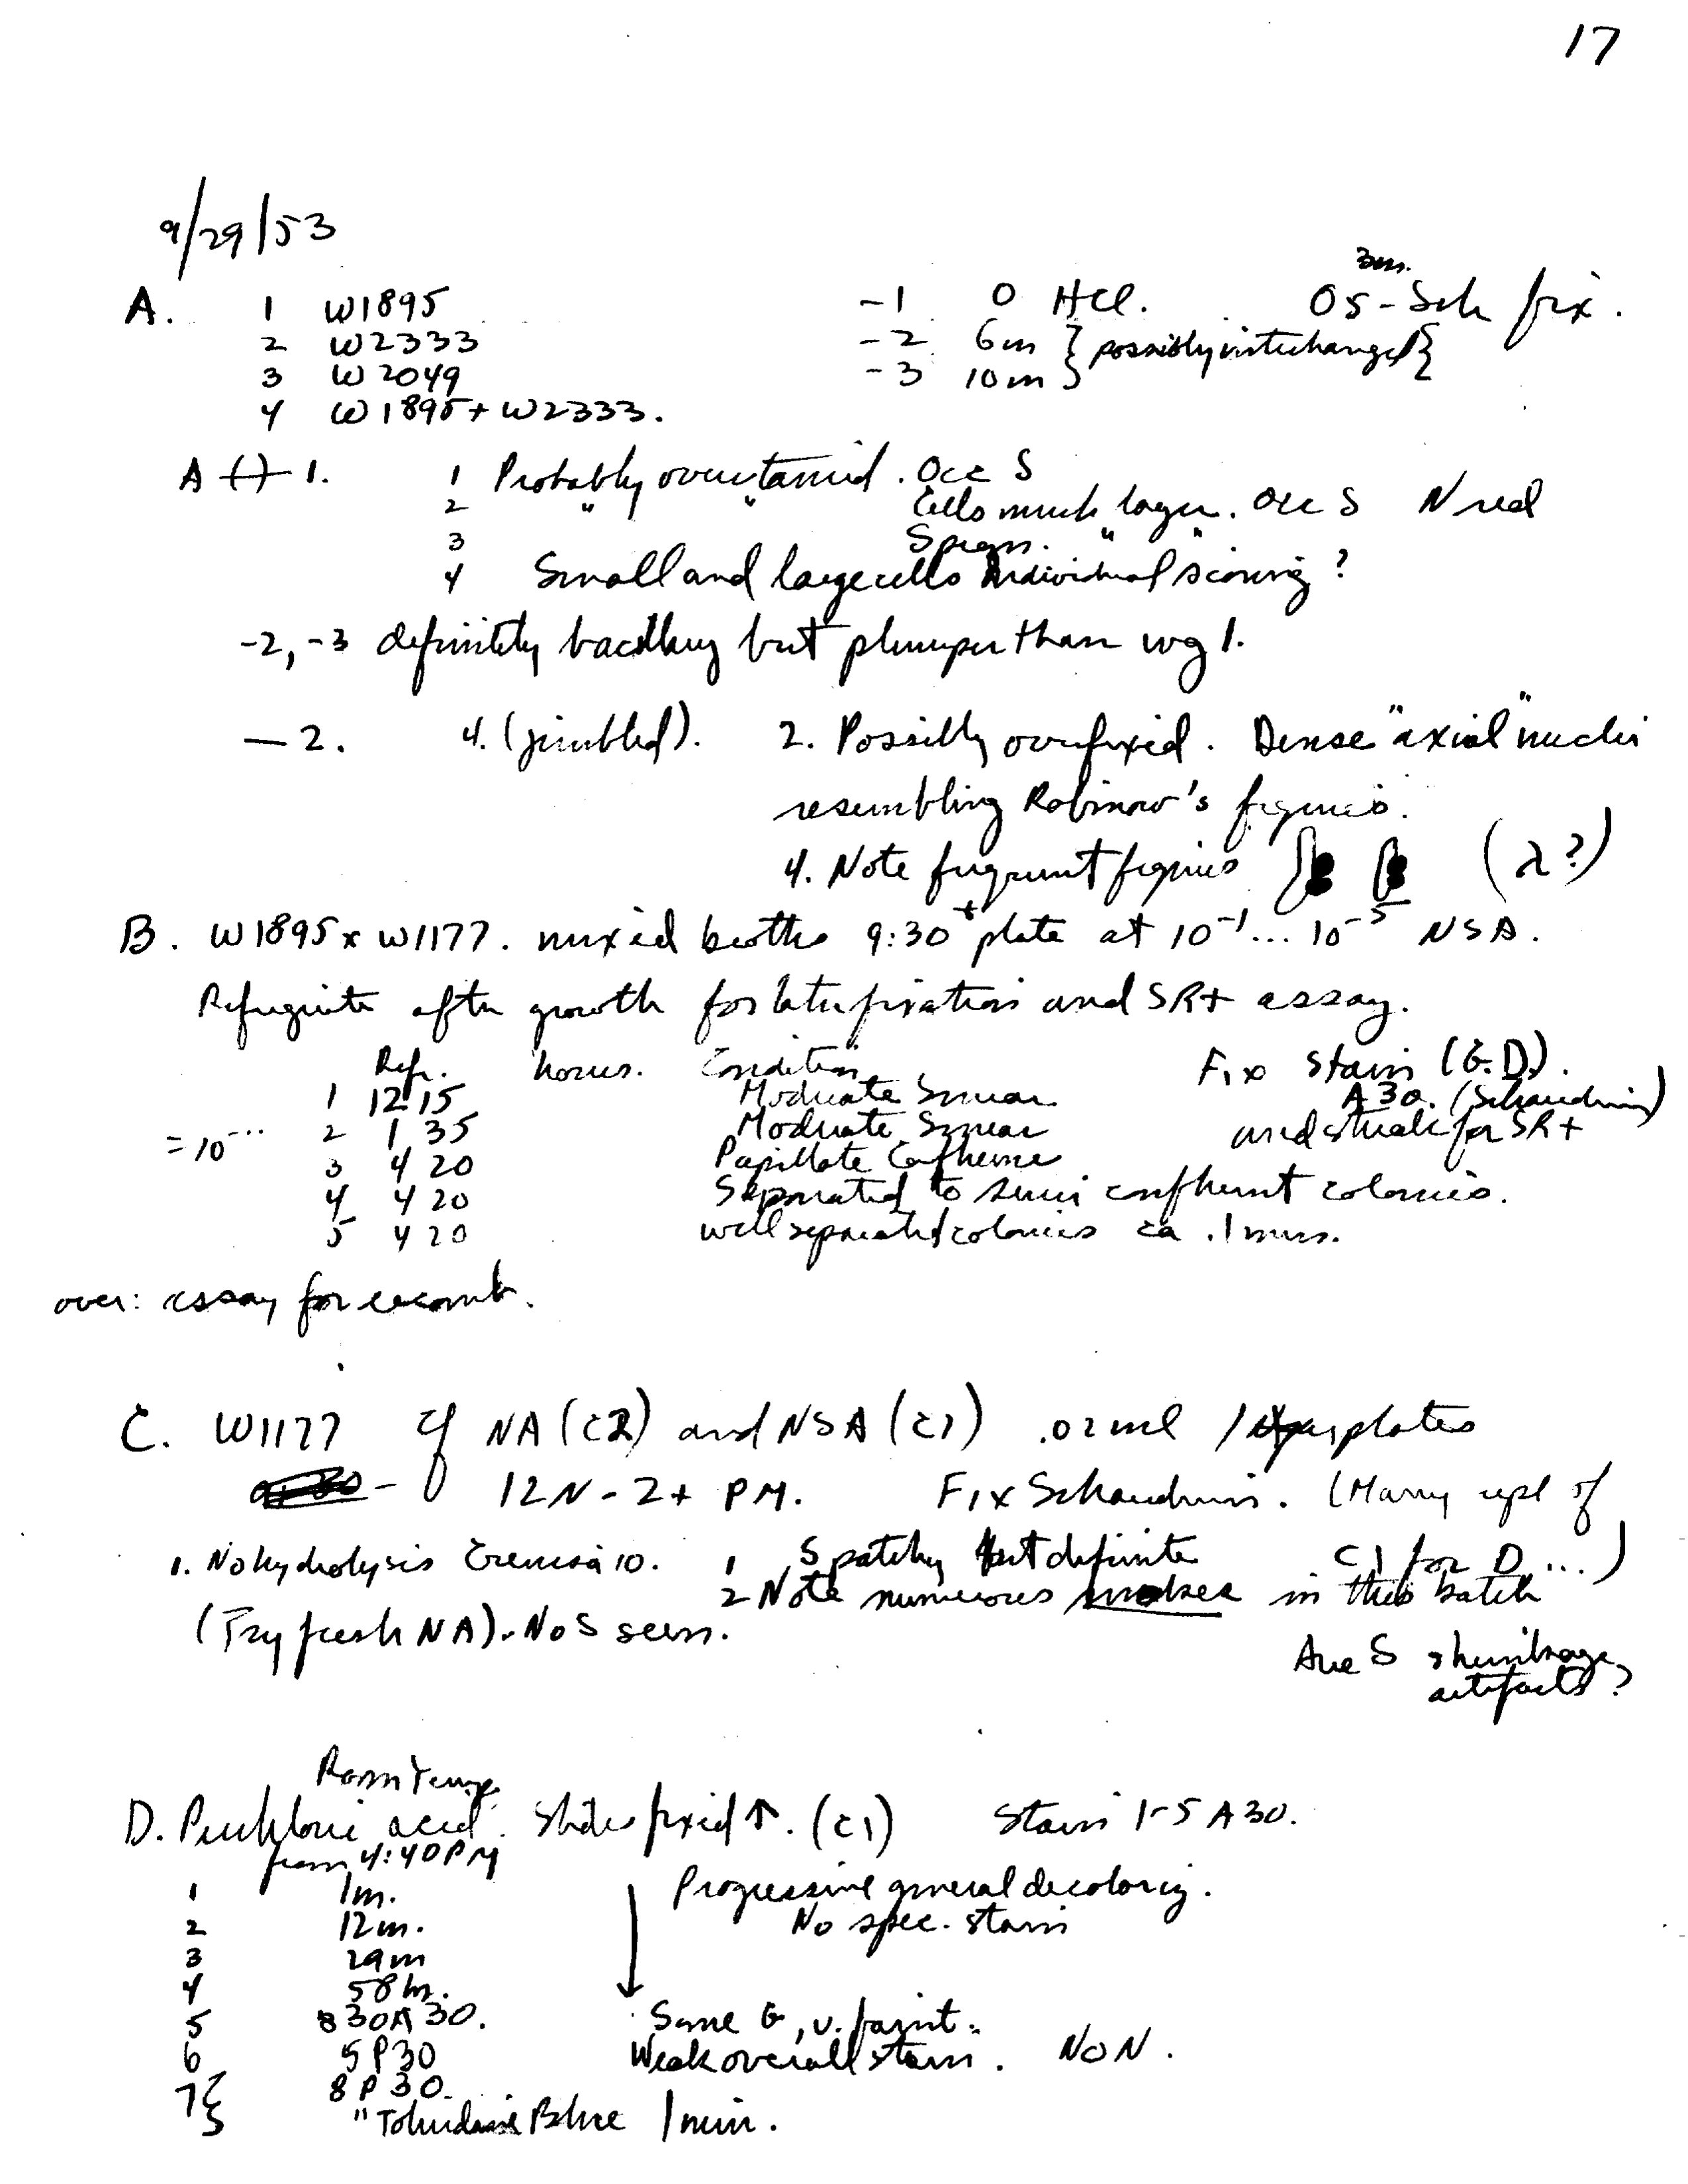 17
9/29/53
A. 1 W1895 -1 0 HCl. 3m. Os-Sch fix.
2 W2333 -2 6m } possibly interchanged {
3 W2049 -3 10m }
4 W1895 + W2333.
A ( ) 1. 1 Probably overstained. Occ S
2 " " Cells much larger. Occ S N red
3 S pregn. " "
4 Small and large cells Individual scoring?
-2, -3 definitely but plumper than wg 1.
— 2. 4. (jumbled). 2. Possibly overfixed. Dense "axial" nuclei
resembling Robinow's figures.
4. Note frequent figures (λ?)
B. W1895 x W1177. mixed broths 9:30+ plate at 10-1... 10-5 NSA.
Refrigerate after growth for later fixation and SR+ assay.
Refr. hours. Condition Fix Stain (G.D.).
1 12 15 Moderate Smear A 30. (Schaudinn)
=10-... 2 1 35 Moderate Smear and streak for SR+
3 4 20 Papillate Confluence
4 4 20 Separated to semi confluent colonies.
5 4 20 well separated colonies ca .1 mm.
over: assay for recomb.
C. W1177 cf NA (C2) and NSA (C1) .02 ml / plates
- 12N - 2+ PM. Fix Schaudinn. (Many repl of
C1 for D ...)
1. No hydrolysis Giemsa 10. 1 S patchy but definite
2 Note numerous in this batch
(Try fresh NA). No S seen.
Are S shrinkage
artifacts?
Room Temp.
D. Perchloric acid. Slides fixed ↑. (C1) Stain 1-5 A 30.
from 4:40 PM
1 1m. Progressive general decoloriz.
2 12m. No spec. stain
3 29m
4 58m.
5 830A 30. Same G, v. faint.
6 5P30 Weak overall stain. No N.
7 { 8 P 30.
" Toluidine Blue 1 min.